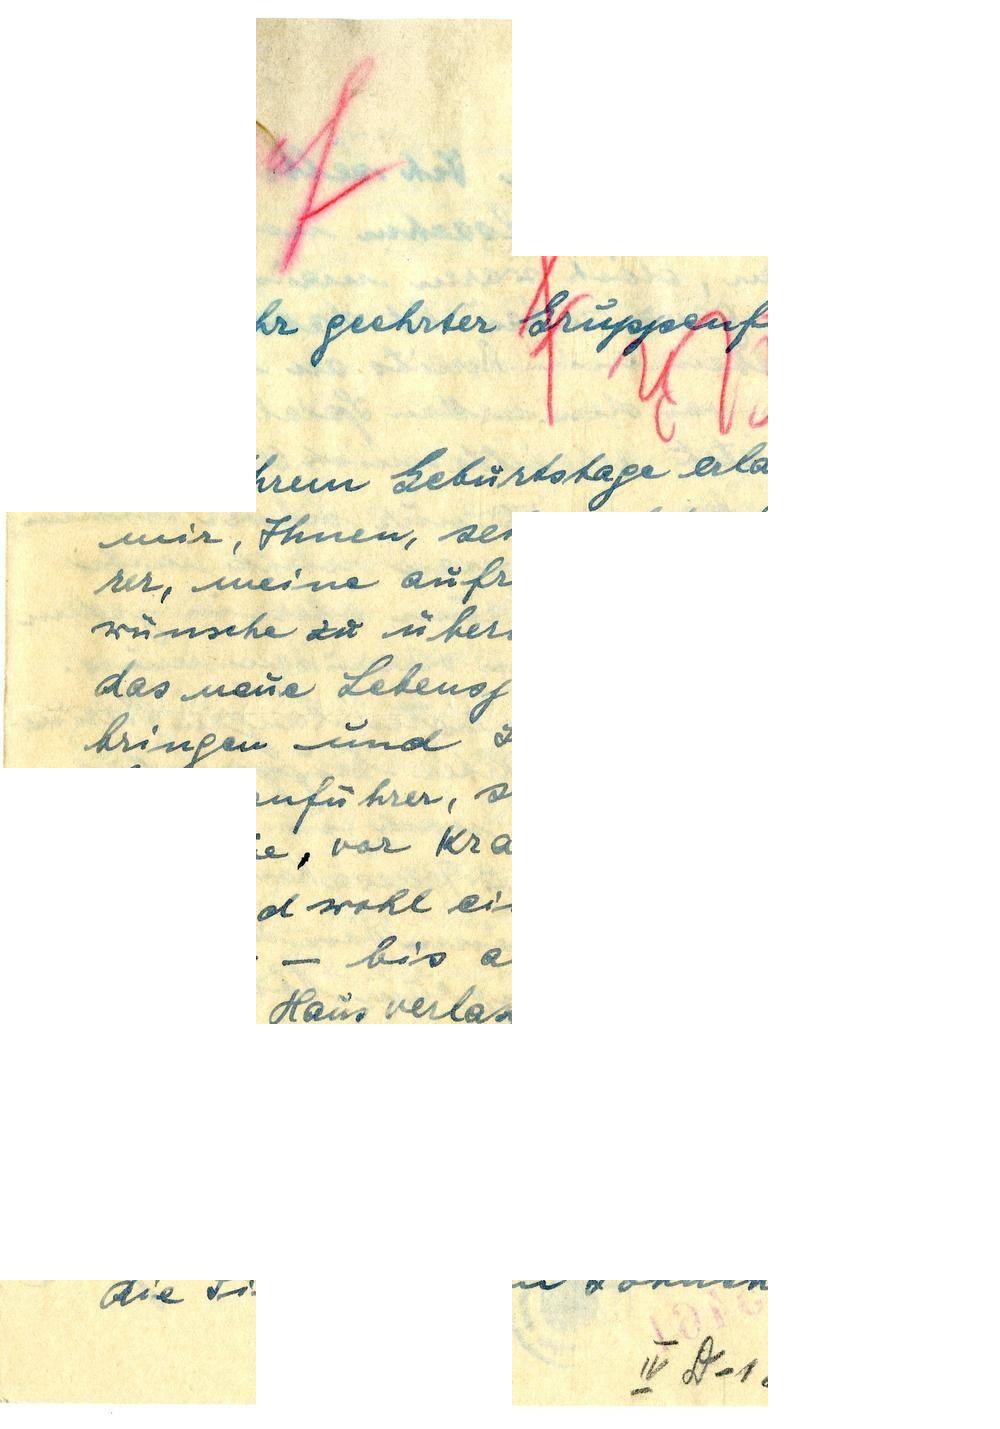 hr geehrter Gruppenf
hrem Geburtstage erla
mir, Ihnen, se
rer, meine aufr
wünsche zu über
das neue Lebens
bringen und
nführer, s
ie, vor Kra
d wohl ei
– bis a
Haus verlas
die
IV D-1